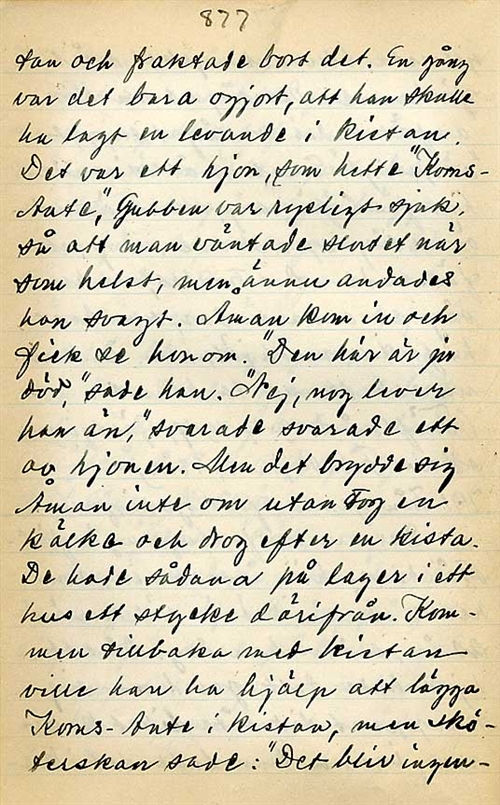 877
tan och fraktade bort det. En gång
var det bara ogjort, att han skulle
ha lagt en levande i kistan.
Det var ett hjon, som hette "Korns-
Ante," Gubben var rycligt sjuk,
så att man väntade slutet när
som helst, men ännu andades
han svagt. Åman kom in och
fick se honom. "Den här är ju
död," sade han. "Nej, nog lever
han än," svarade svarade ett
av hjonen. Men det brydde sig
Åman inte om utan tog en
kälke och drog efter en kista.
De hade sådana på lager i ett
hus ett stycke därifrån. Kom-
men tillbaka med kistan
ville han ha hjälp att lägga
Korns-Ante i kistan, men skö-
terskan sade: "Det blir ingen-